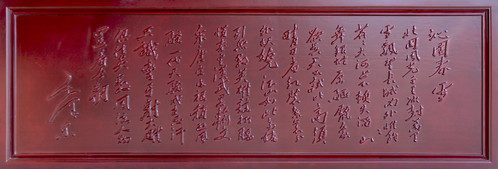 沁园春 雪
北国风光千里冰封万里
雪飘望长城内外惟
大河上下顿失滔滔山
舞银蛇原驰蜡象
欲与天公试比高须
晴日看红装素裹
分外妖娆 江山如此多娇
引无数英雄竞折腰
惜秦皇汉武略输文采
唐宗宋祖稍逊风
骚一代天骄成吉思汗
只识弯弓射大雕
俱往矣数风流人物
还看今朝
毛泽东